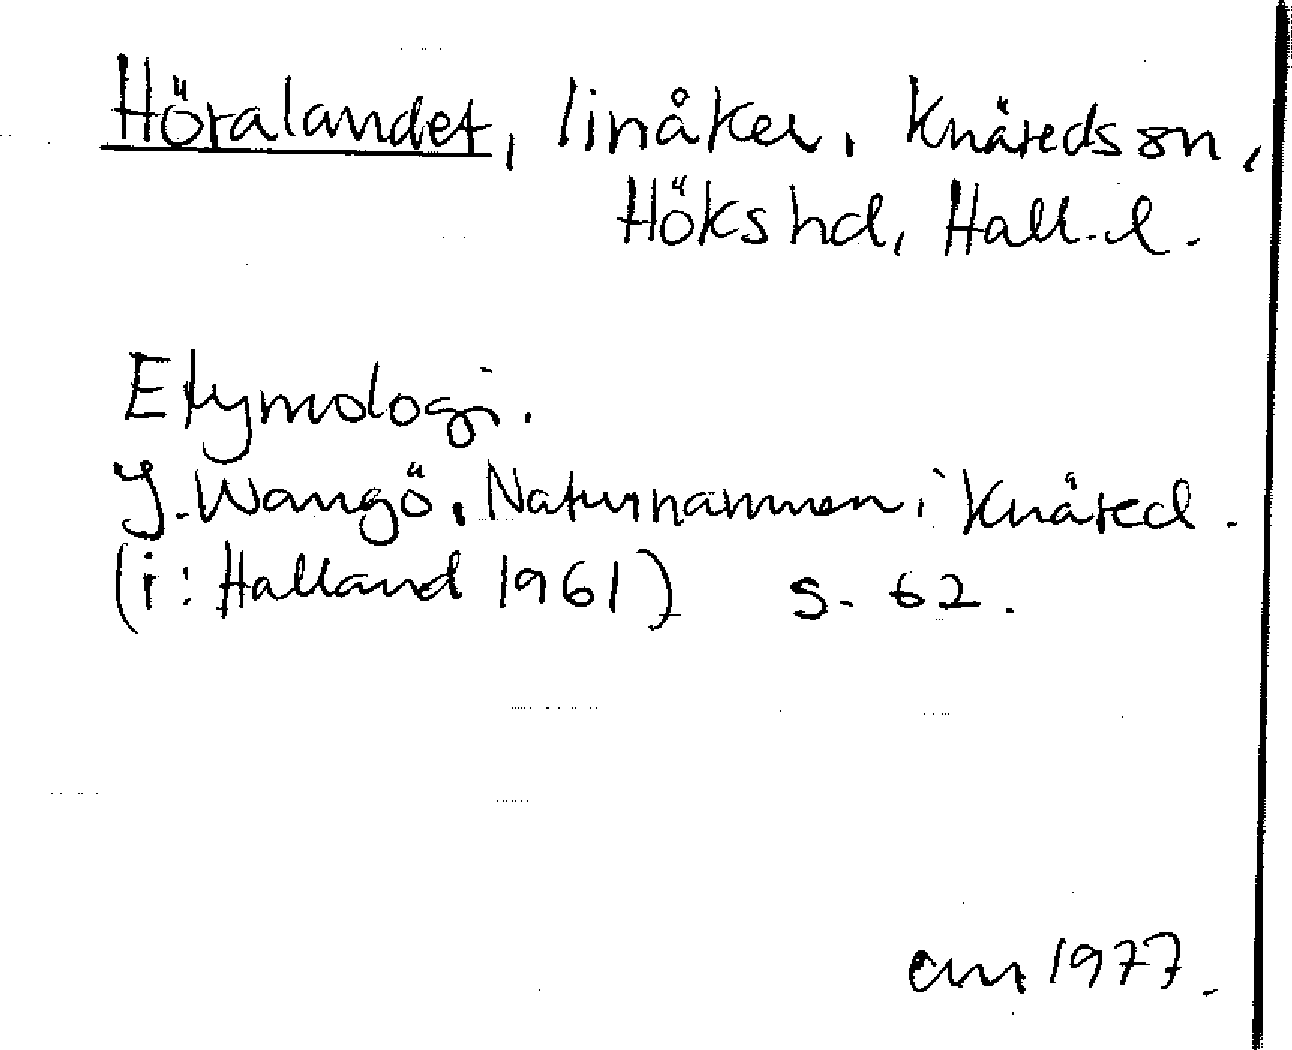 Höralandet, linåker, Knäreds sn,
Höks hd, Hall. l.
Etymologi.
J. Wangö, Naturnamnen i Knäred.
(i: Halland 1961) s. 62.
1977.